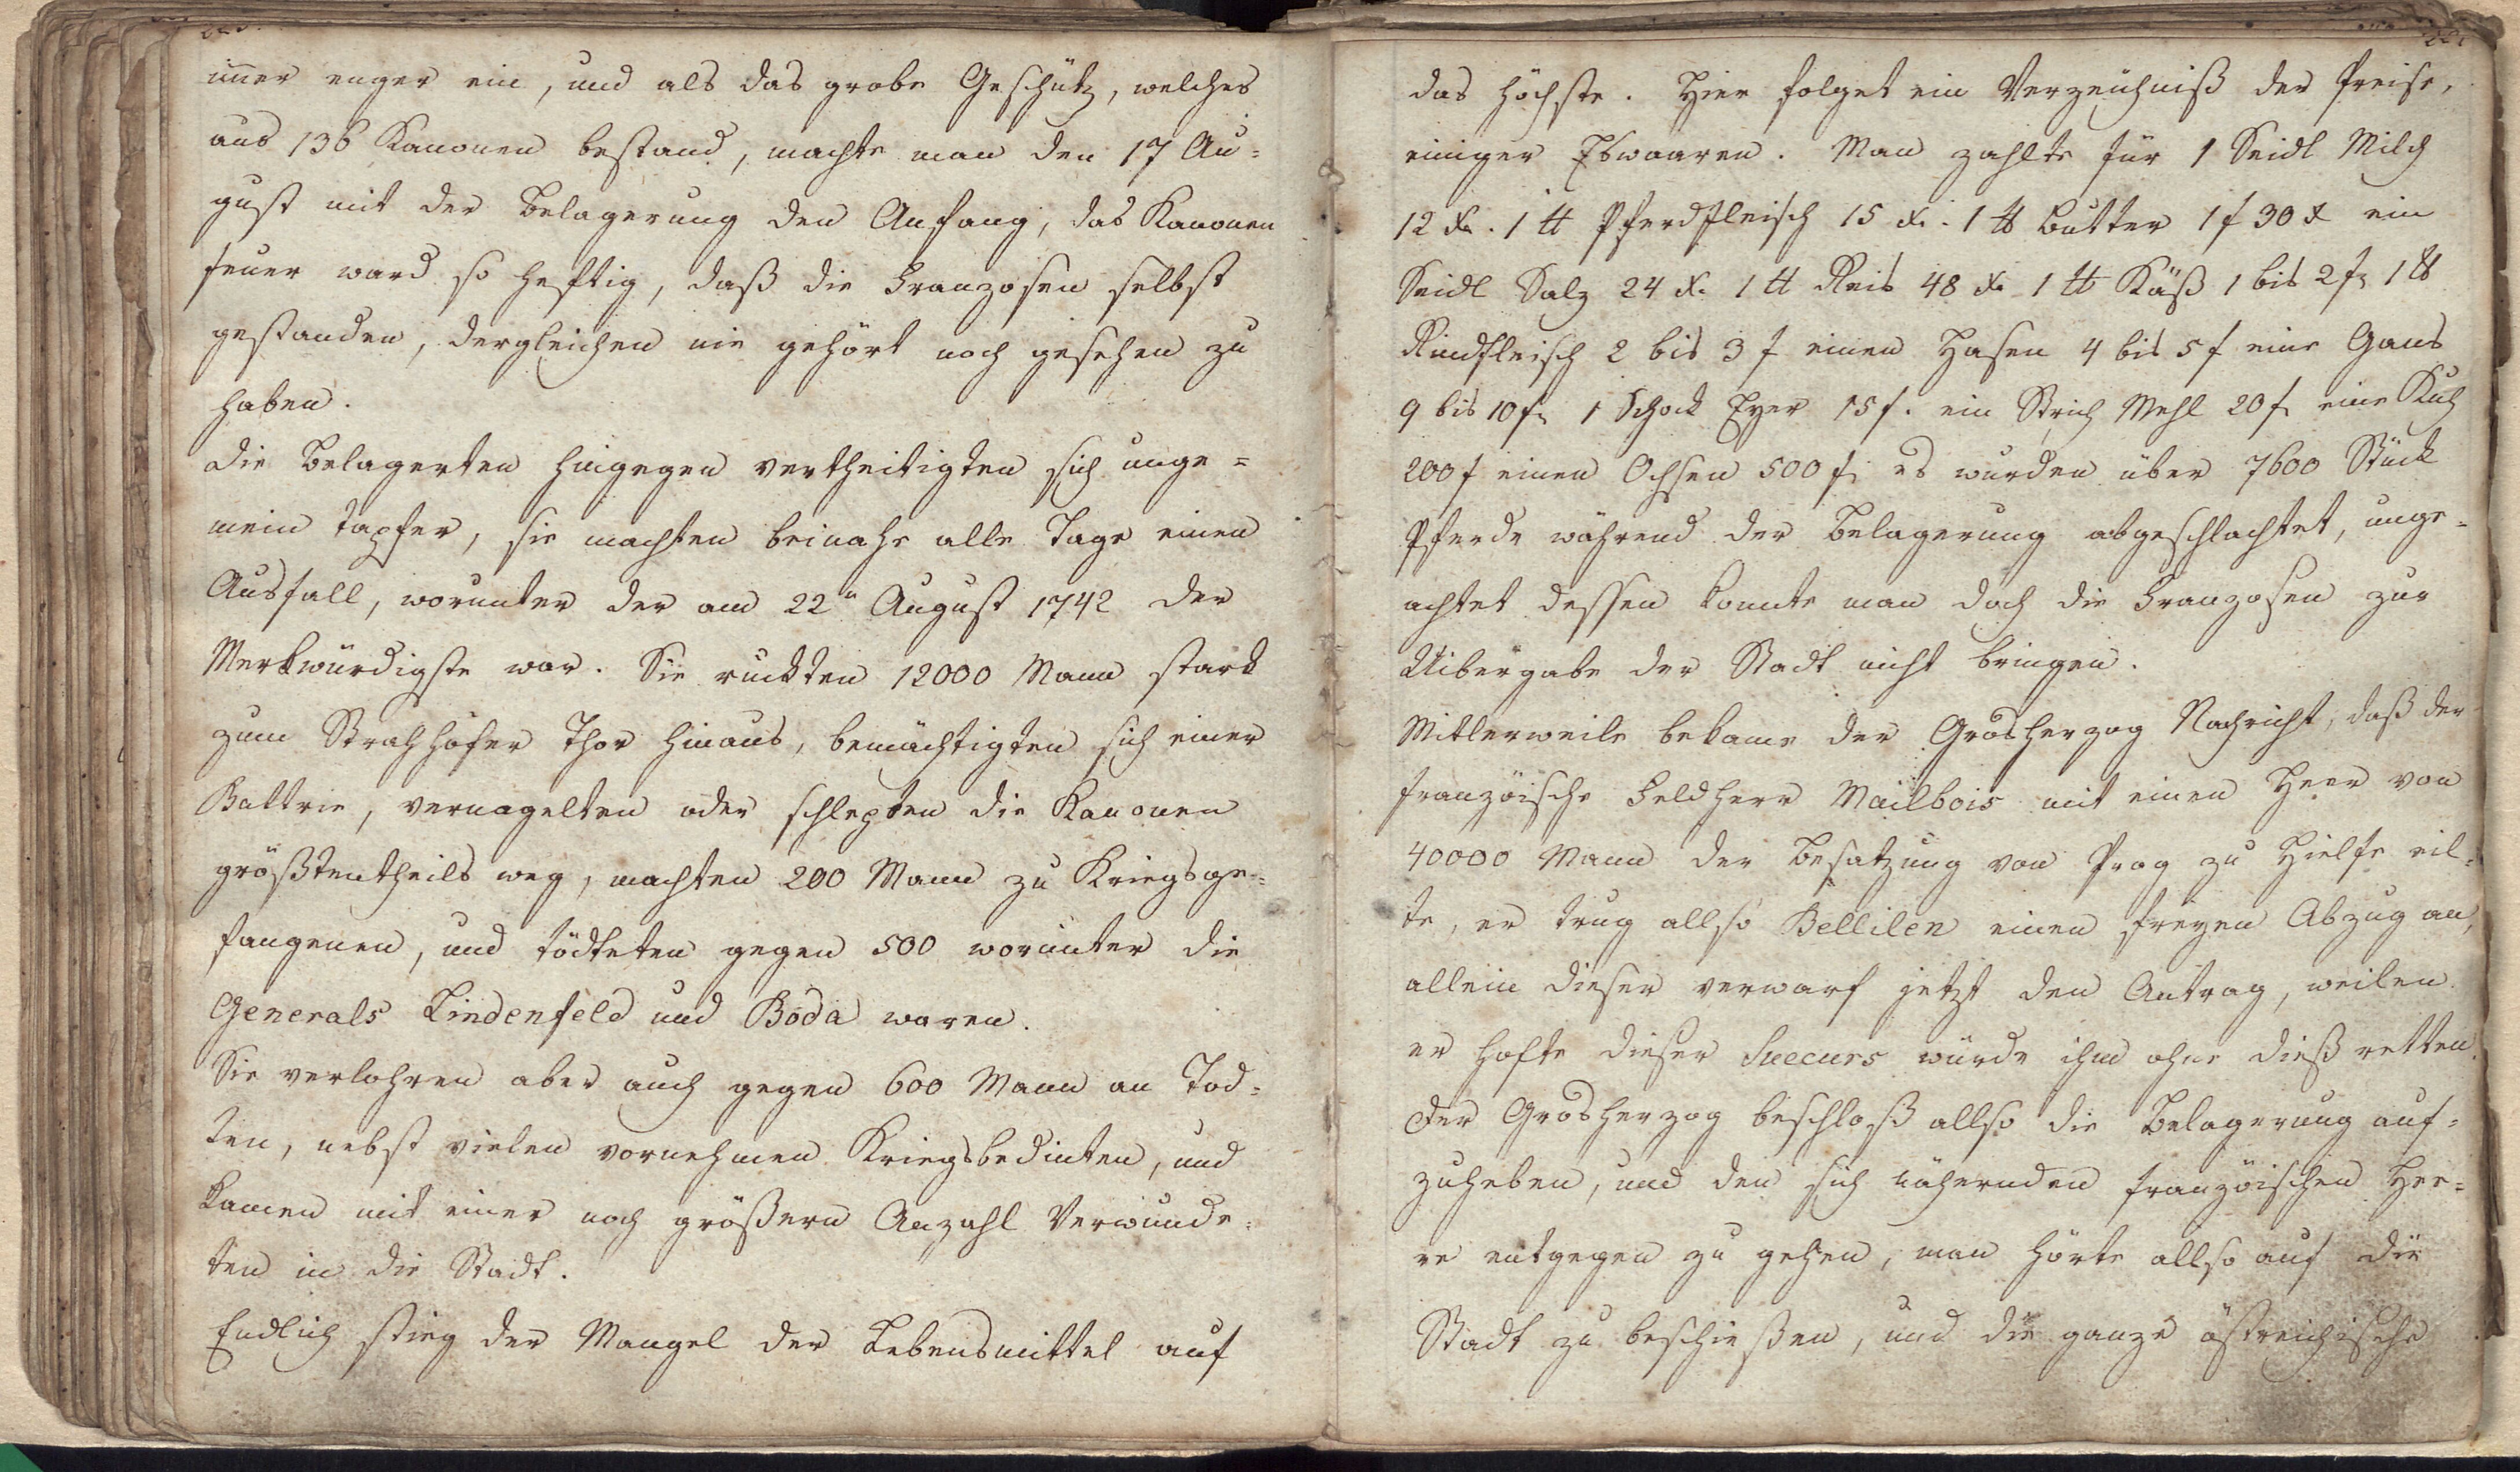 im̄er enger ein, und als das grobe Geschütz, welches
aus 136 Kanonen bestand, machte man den 17 Au=
gust mit der Belagerung den Anfang, das Kanonen
feuer ward so heftig, daß die Franzosen selbst
gestanden, dergleichen nie gehört noch gesehen zu
haben.
Die Belagerten hingegen vertheitigten sich unge=
mein tapfer, sie machten beinahe alle Tage einen
Ausfall, worunter der am 22n August 1742 der
Merkwürdigste war. Sie ruckten 12000 Mann stark
zum Strahhöfer Thor hinaus, bemächtigten sich einer
Battrie, vernagelten oder schlepten die Kanonen
größtentheils weg, machten 200 Mann zu Kriegsge=
fangenen, und tödteten gegen 500 worunter die
Generals Lindenfeld und Boda waren.
Sie verlohren aber auch gegen 600 Mann an Tod=
ten, nebst vielen vornehmen Kriegsbedinten, und
kamen mit einer noch größern Anzahl Verwunde=
ten in die Stadt.
Endlich stieg der Mangel der Lebensmittel auf
das höchste. Hier folget ein Verzeichniß der Preise,
einiger Eßwaaren. Man zahlte für 1 Seidl Milch
12 x. 1 ℔ Pferdfleisch 15 x. 1 ℔ Butter 1 f 30 x ein
Seidl Salz 24 x. 1 ℔ Reis 48 x 1 ℔ Käß 1 bis 2 f, 1 ℔
Rindfleisch 2 bis 3 f einen Hasen 4 bis 5 f eine Gans
9 bis 10 f, 1 Schock Eyer 15 f. ein Strich Mehl 20 f eine Kuh
200 f einen Ochsen 500 f, es wurden über 7600 Stück
Pferde während der Belagerung abgeschlachtet, unge=
achtet dessen konnte man doch die Franzosen zur
Uibergabe der Stadt nicht bringen.
Mitlerweile bekame der Grosherzog Nachricht, daß der
französche Feldherr Mailbois mit einen Heer von
40000 Mann der Besatzung von Prag zu Hielfe eil=
te, er trug allso Bellilen einen freyen Abzug an,
allein dieser verwarf jetzt den Antrag, weilen
er hofte dieser Succurs würde ihm ohne dieß retten.
Der Grosherzog beschloß allso die Belagerung auf=
zuheben, und den sich nähernden französchen Hee=
re entgegen zu gehen, man hörte allso auf die
Stadt zu beschießen, und die ganze östreichische